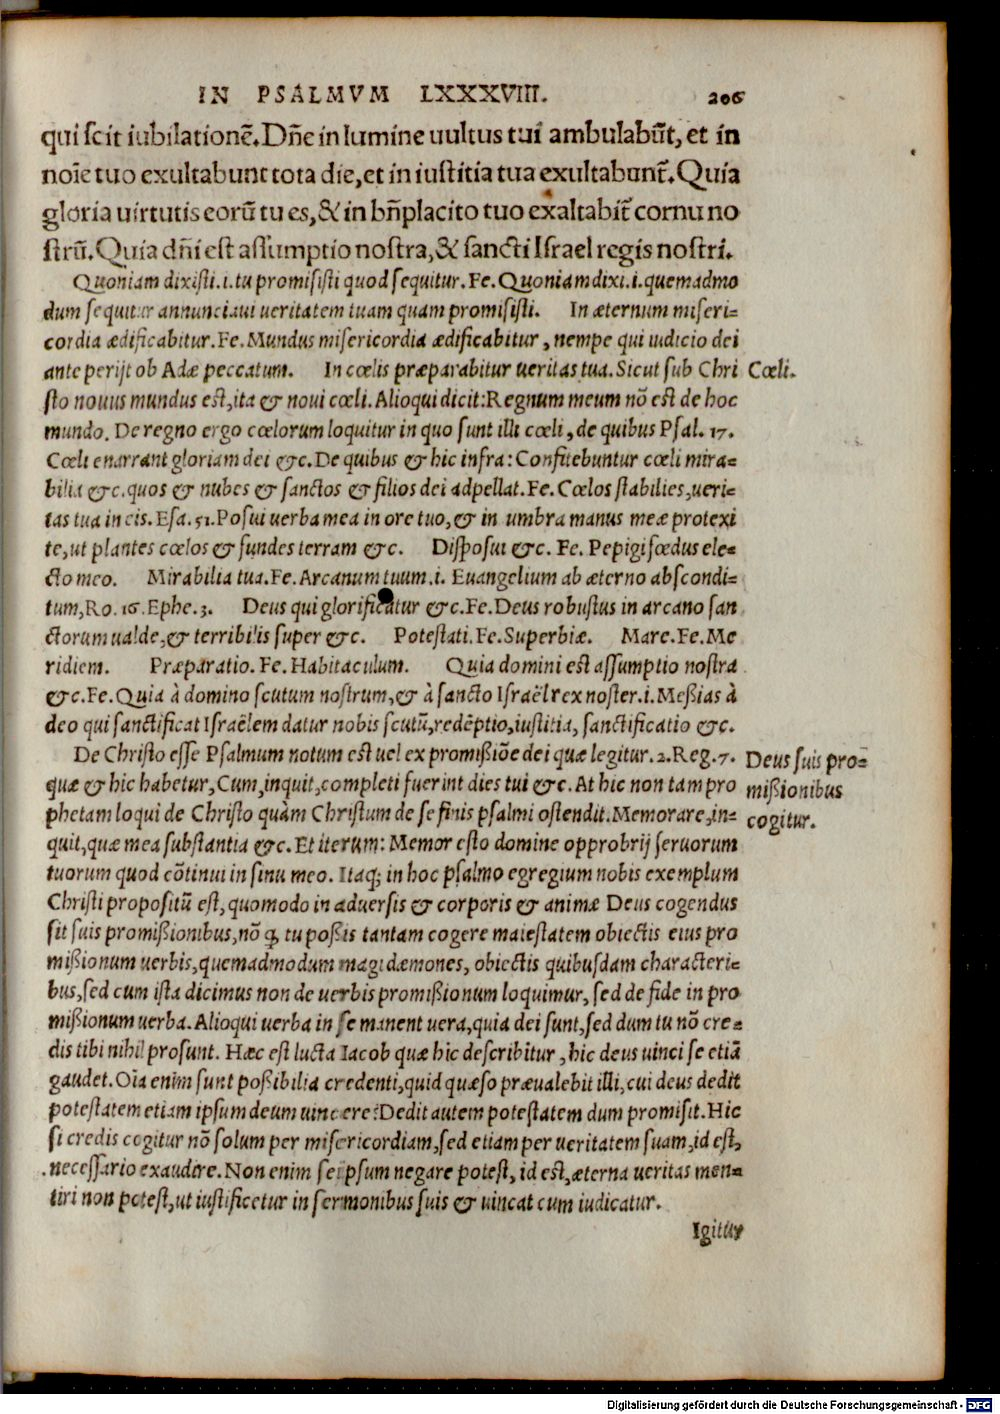 IN PSALMVM LXXXVIII. 206
qui scit iubilationē. Dn̄e in lumine uultus tui ambulabūt, et in
noīe tuo exultabunt tota die, et in iustitia tua exultabunt̄. Quia
gloria uirtutis eorū tu es, & in bn̄placito tuo exaltabit̄ cornu no
strū. Quia dn̄i est assumptio nostra, & sancti Israel regis nostri.
Quoniam dixisti. i. tu promisisti quod sequitur. Fe. Quoniam dixi. i. quemadmo
dum sequitur annunciaui ueritatem tuam quam promisisti. In æternum miseri-
cordia ædificabitur. Fe. Mundus misericordia ædificabitur, nempe qui iudicio dei
ante perijt ob Adæ peccatum. In cœlis præparabitur ueritas tua. Sicut sub Chri
Cœli.
sto nouus mundus est, ita & noui cœli. Alioqui dicit: Regnum meum nō est de hoc
mundo. De regno ergo cœlorum loquitur in quo sunt illi cœli, de quibus Psal. 17.
Cœli enarrant gloriam dei &c. De quibus & hic infra: Confitebuntur cœli mira-
bilia &c. quos & nubes & sanctos & filios dei adpellat. Fe. Cœlos stabilies, ueri-
tas tua in eis. Esa. 51. Posui uerba mea in ore tuo, & in umbra manus meæ protexi
te, ut plantes cœlos & fundes terram &c. Disposui &c. Fe. Pepigi fœdus ele-
cto meo. Mirabilia tua. Fe. Arcanum tuum. i. Euangelium ab æterno abscondi-
tum, Ro. 16. Ephe. 3. Deus qui glorificatur &c. Fe. Deus robustus in arcano san
ctorum ualde, & terribilis super &c. Potestati. Fe. Superbiæ. Mare. Fe. Me
ridiem. Præparatio. Fe. Habitaculum. Quia domini est assumptio nostra
&c. Fe. Quia à domino scutum nostrum, & à sancto Israël rex noster. i. Meßias à
deo qui sanctificat Israëlem datur nobis scutū, redēptio, iustitia, sanctificatio &c.
De Christo esse Psalmum notum est uel ex promißiōe dei quæ legitur. 2. Reg. 7.
quæ & hic habetur, Cum, inquit, completi fuerint dies tui &c. At hic non tam pro
phetam loqui de Christo quàm Christum de se finis psalmi ostendit. Memorare, in-
Deus suis pro-
mißionibus
cogitur.
quit, quæ mea substantia &c. Et iterum: Memor esto domine opprobrij seruorum
tuorum quod cōtinui in sinu meo. Itaq; in hoc psalmo egregium nobis exemplum
Christi propositū est, quomodo in aduersis & corporis & animæ Deus cogendus
sit suis promißionibus, nō q̇ tu poßis tantam cogere maiestatem obiectis eius pro
mißionum uerbis, quemadmodum magi dæmones, obiectis quibusdam characteri-
bus, sed cum ista dicimus non de uerbis promißionum loquimur, sed de fide in pro
mißionum uerba. Alioqui uerba in se manent uera, quia dei sunt, sed dum tu nō cre-
dis tibi nihil prosunt. Hæc est lucta Iacob quæ hic describitur, hic deus uinci se etiā
gaudet. Oīa enim sunt poßibilia credenti, quid quæso præualebit illi, cui deus dedit
potestatem etiam ipsum deum uincere? Dedit autem potestatem dum promisit. Hic
si credis cogitur nō solum per misericordiam, sed etiam per ueritatem suam, id est,
necessario exaudire. Non enim seipsum negare potest, id est, æterna ueritas men-
tiri non potest, ut iustificetur in sermonibus suis & uincat cum iudicatur.
Igitur
Digitalisierung gefördert durch die Deutsche Forschungsgemeinschaft - DFG